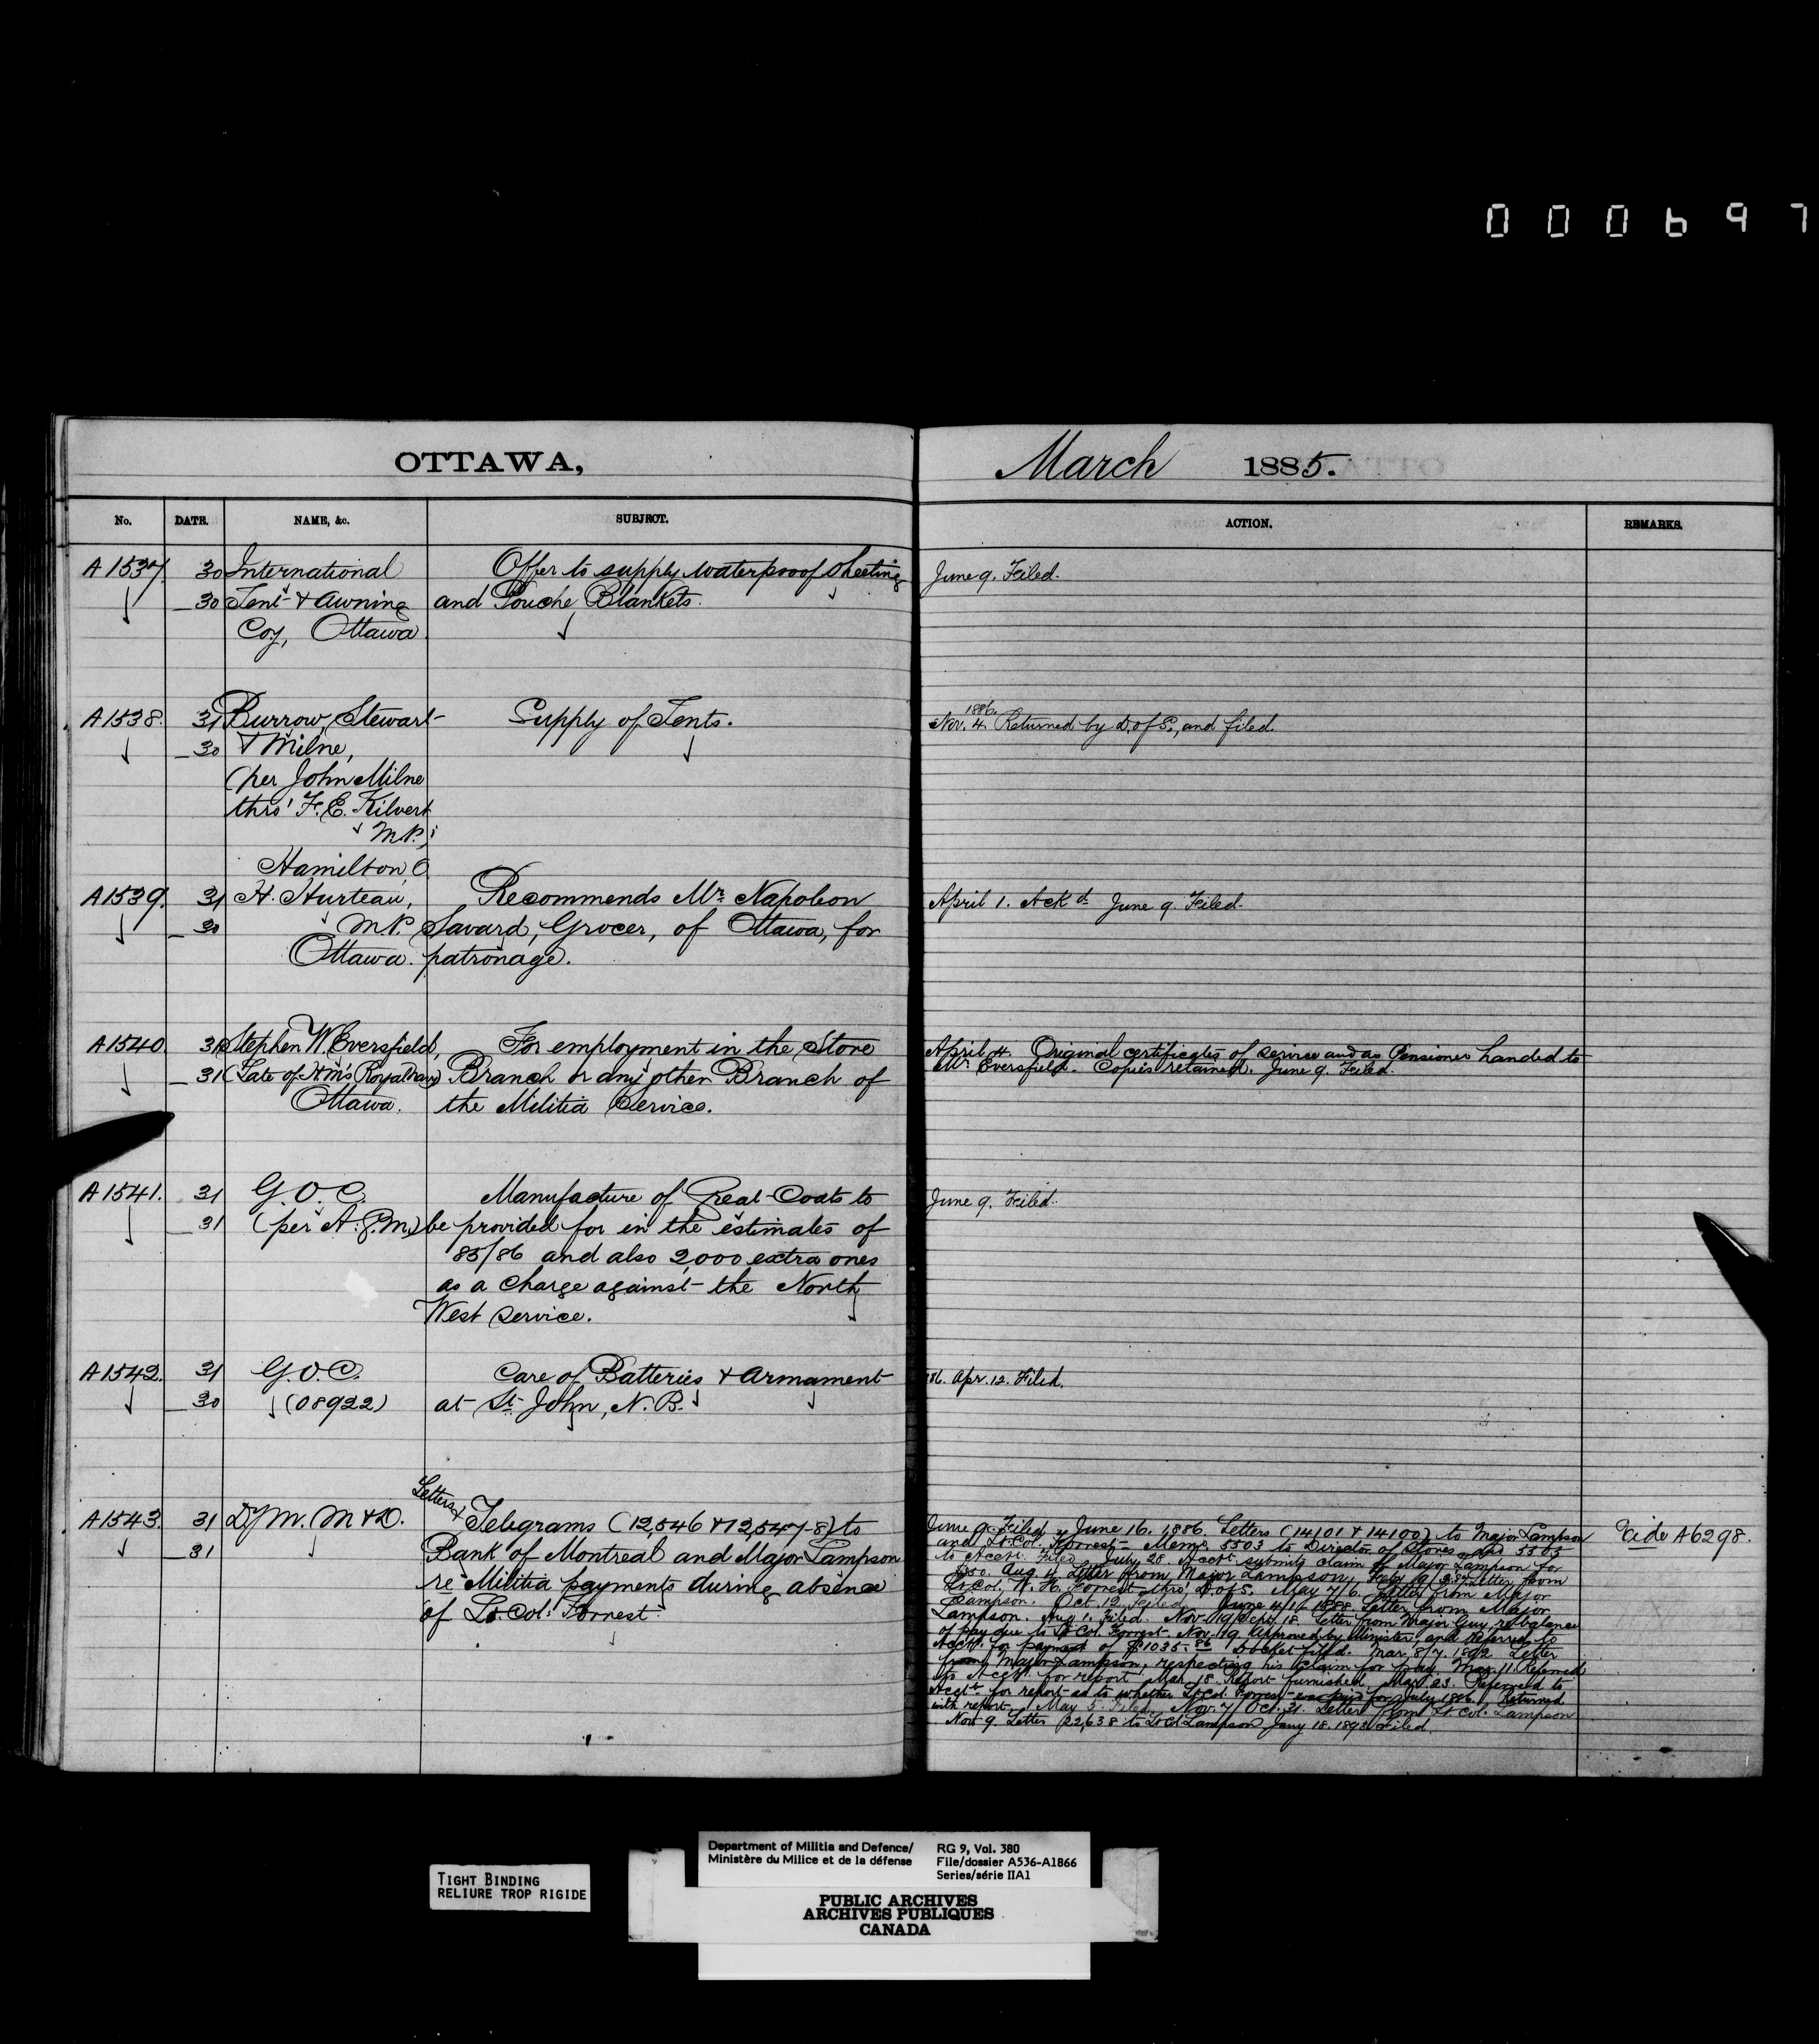 000697
OTTAWA,
March 1885.
No. DATE. NAME, &c. SUBJECT. ACTION. REMARKS.
A 1537. 30 International Offer to supply waterproof sheeting June 9. Filed.
30 Tent & Awning and Pouche Blankets.
Coy, Ottawa
A 1538. 31 Burrow, Stewart Supply of Tents. 1886. Nov. 4. Returned by D. of S., and filed.
30 & Milne,
(per John Milne
thro' F. E. Kilvert
M.P.,
Hamilton, O
A 1539. 31 H. Hurteau, Recommends Mr. Napoleon April 1. Ackd. June 9. Filed.
30 M.P. Savard, Grocer, of Ottawa, for
Ottawa. patronage.
A 1540. 31 Stephen W. Eversfield, For employment in the Store April 4. Original certificates of service and as Pensioner handed to
31 (Late of H.M's Royal Navy) Branch or any other Branch of Mr. Eversfield. Copies retained. June 9. Filed.
Ottawa. the Militia Service.
A 1541. 31 G.O.C. Manufacture of Great-Coats to June 9. Filed.
31 (per A.P.M.) be provided for in the estimates of
85/86 and also 2,000 extra ones
as a charge against the North
West Service.
A 1542. 31 G.O.C. Care of Batteries & Armament '86. Apr. 12. Filed.
30 (08922) at St. John, N.B.
A 1543. 31 D/M. M & D. Letters & Telegrams (12,546 & 12,547-8) to
31 Bank of Montreal and Major Lampson
re Militia payments during absence
of Lt. Col. Forrest.
June 9. Filed. June 16. 1886. Letters (14101 & 14100) to Major Lampson Vide A6298.
and Lt. Col. Forrest - Memo. 5503 to Director of Stores and 5503
to Acct. Filed. July 28. Acct. submits claim of Major Lampson for
Aug. 4 Letter from Major Lampson, Letter from
Lt. Col. W. H. Forrest thro' D. of S. May 7/6 Letter from Major
Lampson. Oct. 12 Filed. June 4/1 1888 Letter from Major
Lampson. Aug 1. Filed. Nov. 19/Sept. 18 Letter from Major Guy, re balance
of pay due to Lt. Col. Forrest. Nov. 19 Approved by Minister, and Referred to
Acct. for payment of $1035.86 Docket filed. Mar. 8/7. 1892 Letter
from Major Lampson, respecting his claim for pay. Mar. 11. Referred
to Acct. for report. Mar. 18. Report furnished. Mar. 23. Referred to
Acct. for report as to whether Lt. Col. Forrest was paid for July 1886. Returned
with report. May 5. Filed. Nov. 7/Oct. 31. Letter from Lt. Col. Lampson
Nov. 9. Letter (22,638 to Lt. Col. Lampson Jany 18. 1893 Filed.
TIGHT BINDING
RELIURE TROP RIGIDE
Department of Militia and Defence/ RG 9, Vol. 380
Ministère du Milice et de la défense File/dossier A536-A1866
Series/série IIA1
PUBLIC ARCHIVES
ARCHIVES PUBLIQUES
CANADA